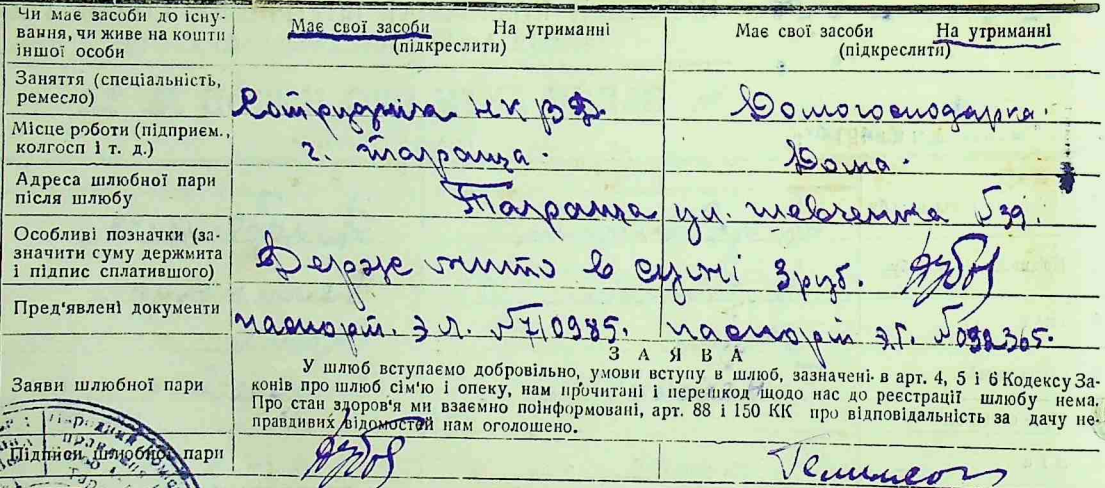 Чи має засоби до існування, чи живе на кошти іншої особи
Має свої засоби На утриманні
(підкреслити)
Має свої засоби На утриманні
(підкреслити)
Заняття (спеціальність, ремесло)
Сотрудник НКВД
Домогосподарка.
Місце роботи (підприєм., колгосп і т. д.)
г. Тараща.
Дома.
Адреса шлюбної пари після шлюбу
Тараща ул. Шевченка №39.
Особливі позначки (зазначити суму держмита і підпис сплатившого)
Держ мито в сумі 3 руб.
Пред'явлені документи
паспорт. Э.Л. №710985. паспорт Э.Г. №092365.
ЗАЯВА
Заяви шлюбної пари
У шлюб вступаємо добровільно, умови вступу в шлюб, зазначені в арт. 4, 5 і 6 Кодексу Законів про шлюб сім'ю і опеку, нам прочитані і перешкод щодо нас до реєстрації шлюбу нема.
Про стан здоров'я ми взаємно поінформовані, арт. 88 і 150 КК про відповідальність за дачу неправдивих відомостей нам оголошено.
Підписи шлюбної пари